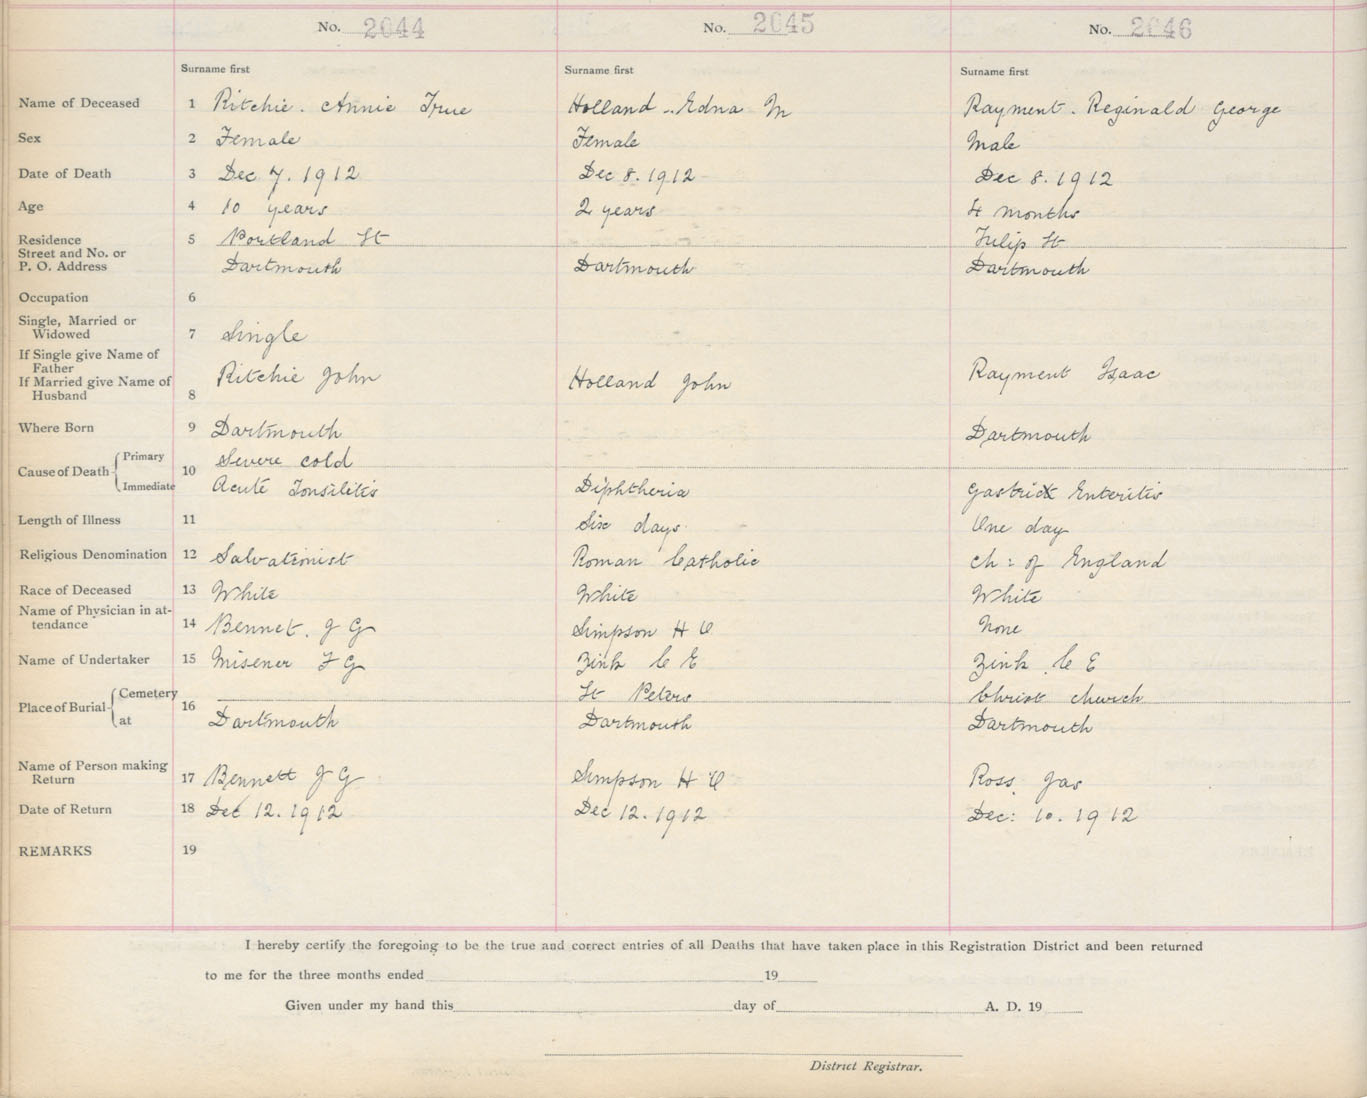 No. 2044 No. 2045 No. 2046
Surname first Surname first Surname first
Name of Deceased 1 Ritchie. Annie True Holland - Edna M Rayment. Reginald George
Sex 2 Female Female Male
Date of Death 3 Dec 7. 1912 Dec 8. 1912 Dec 8. 1912
Age 4 10 years 2 years 4 months
Residence 5 Portland St Tulip St
Street and No. or
P. O. Address Dartmouth Dartmouth Dartmouth
Occupation 6
Single, Married or
Widowed 7 Single
If Single give Name of
Father Ritchie John Holland John Rayment Isaac
If Married give Name of
Husband 8
Where Born 9 Dartmouth Dartmouth
Cause of Death Primary 10 Severe cold
Immediate Acute Tonsilitis Diphtheria Gastrick Enteritis
Length of Illness 11 Six days One day
Religious Denomination 12 Salvationist Roman Catholic Ch: of England
Race of Deceased 13 White White White
Name of Physician in at-
tendance 14 Bennet. J G Simpson H O None
Name of Undertaker 15 Misener F G Zink C E Zink C E
Place of Burial Cemetery 16 St Peters Christ Church
at Dartmouth Dartmouth Dartmouth
Name of Person making
Return 17 Bennett J G Simpson H O Ross Jas
Date of Return 18 Dec 12. 1912 Dec 12. 1912 Dec: 10. 1912
REMARKS 19
I hereby certify the foregoing to be the true and correct entries of all Deaths that have taken place in this Registration District and been returned
to me for the three months ended 19
Given under my hand this day of A. D. 19
District Registrar.